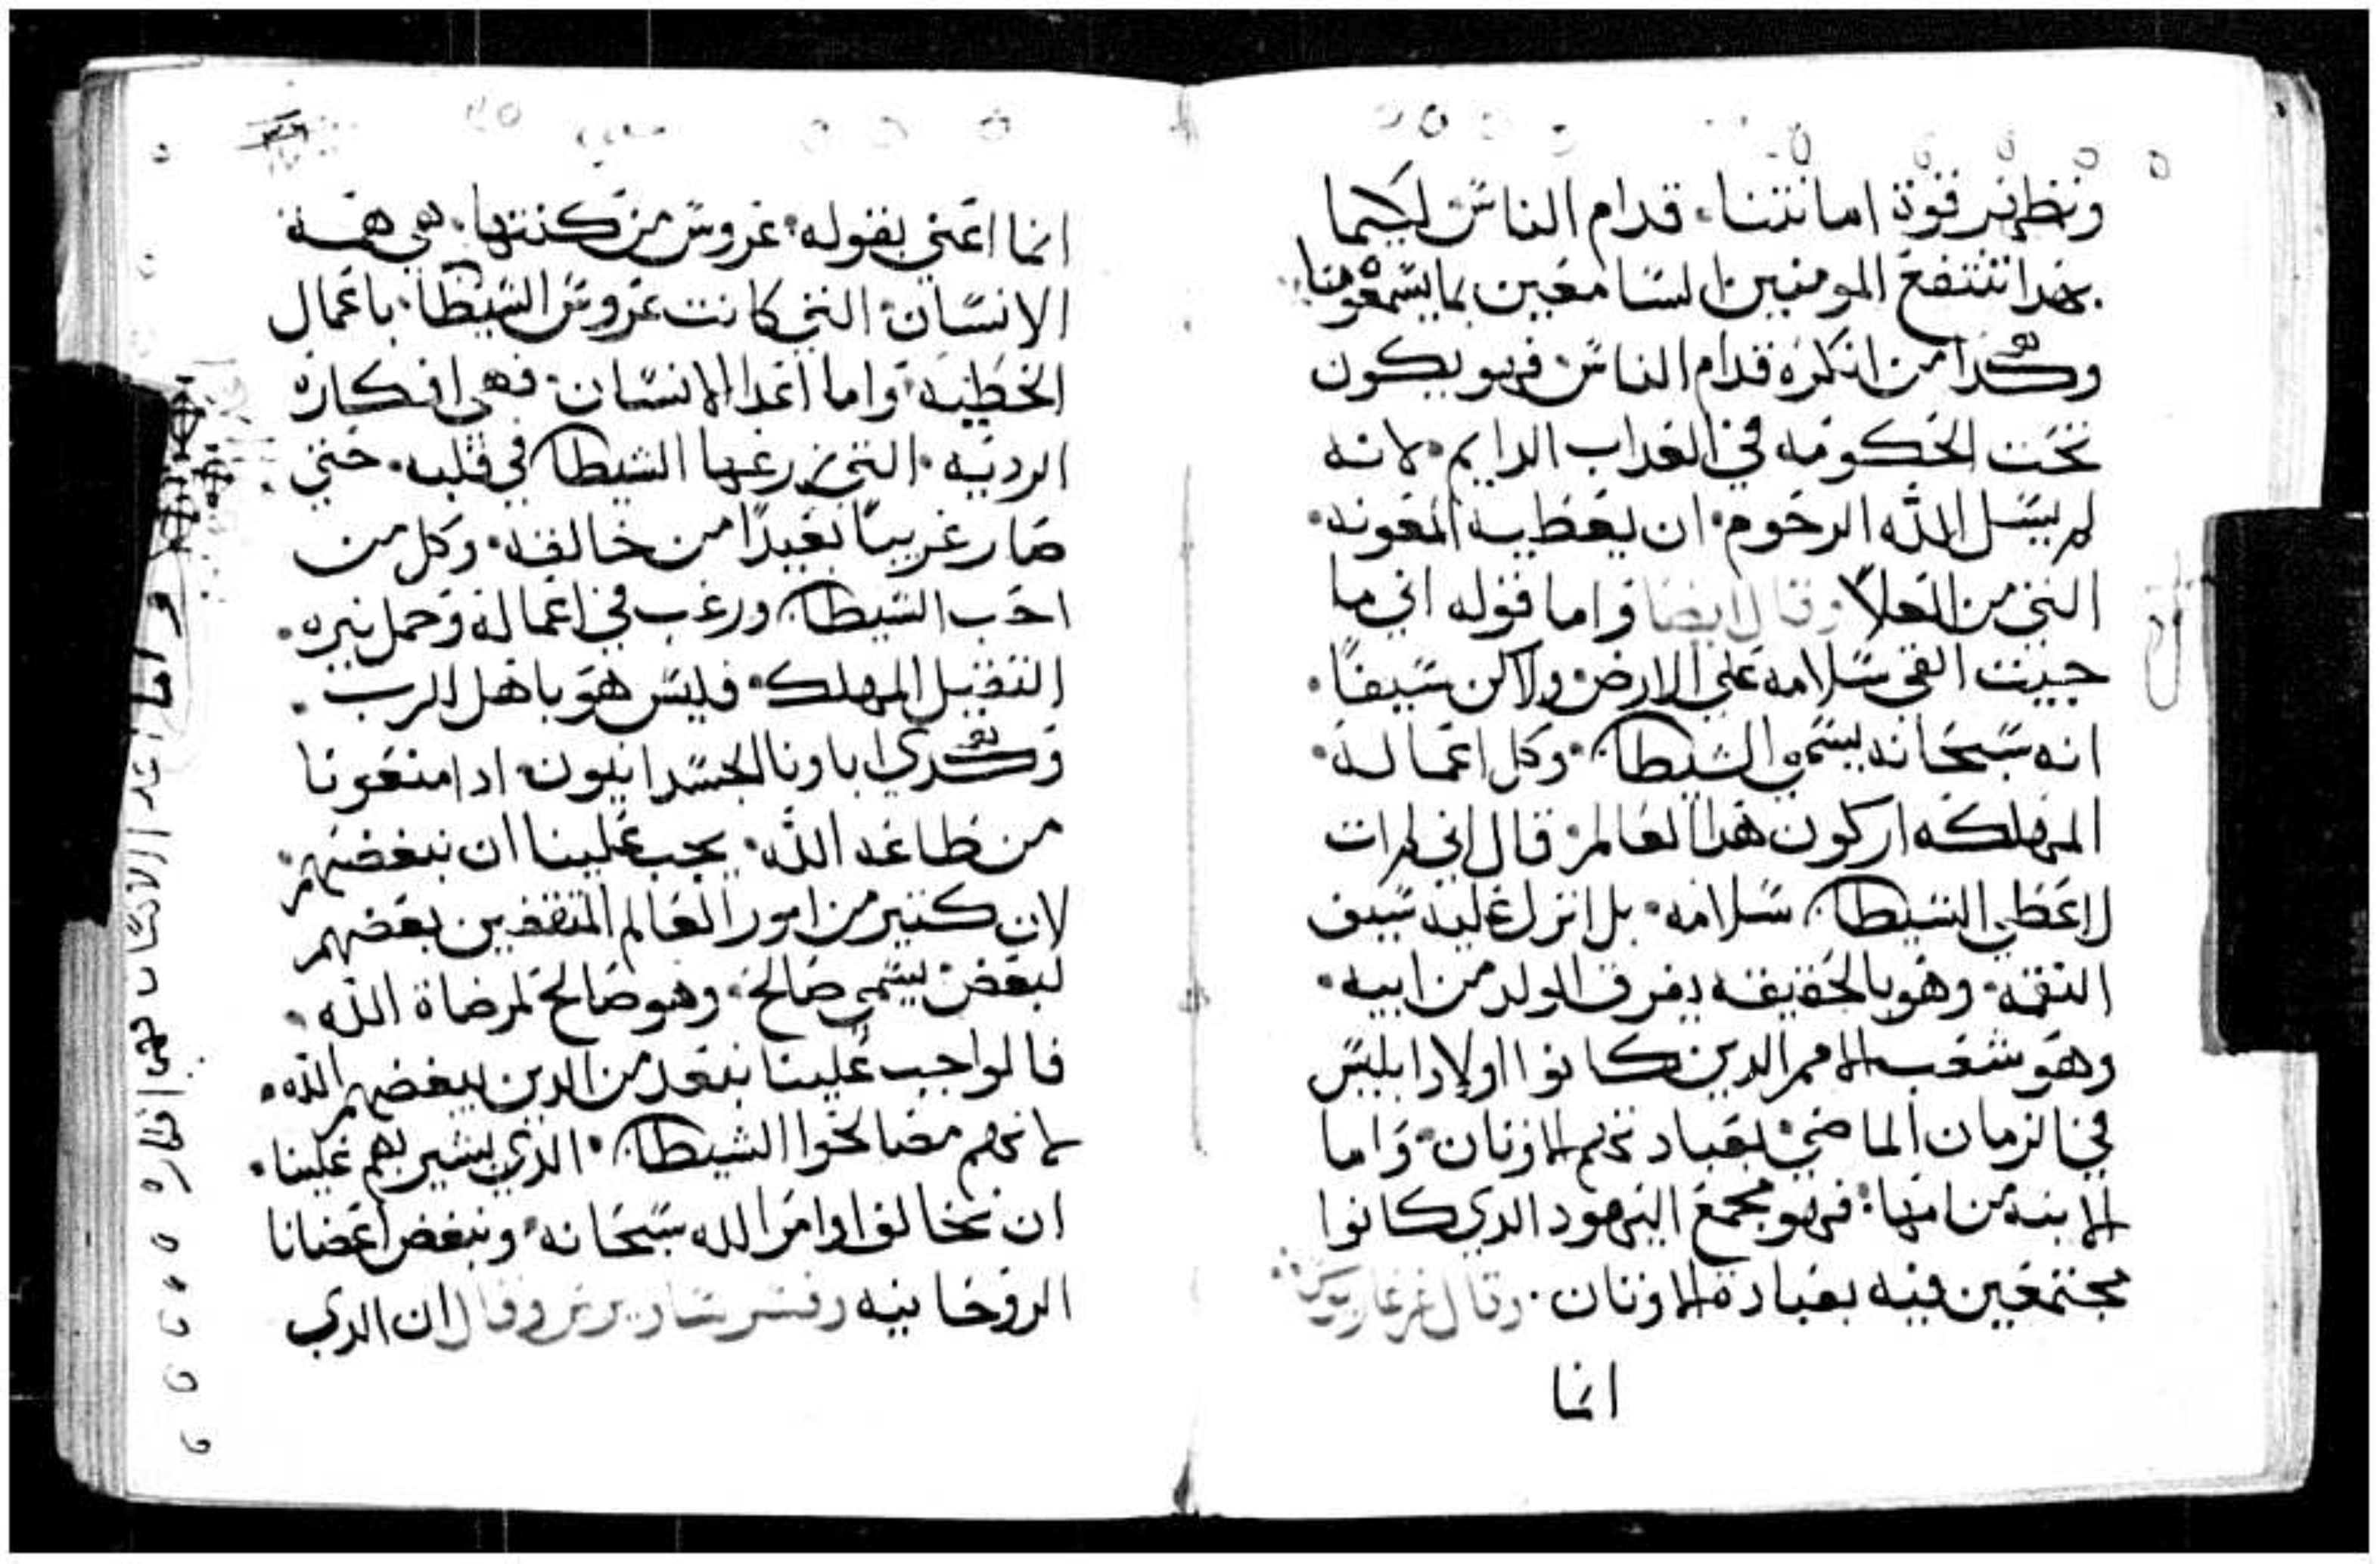 ونظهر قوة امانتنا. قدام الناس لكيما
بهدا تنتفع المومنين السامعين بما يسمعو منا
وهكدا من انكره قدام الناس فهو يكون
تحت الحكومه في العداب الدايم. لانه
لم يسل الله الرحوم. ان يعطيه المعونه.
التي من العلا وقال ايضا واما قوله اني ما
جييت القي سلامه علي الارض ولاكن سيفا.
انه سبحانه يسمي الشيطان. وكل اعماله.
المهلكه اركون هدا العالم. قال اني لم ات
لاعطي الشيطان سلامه. بل انزل عليه سيف
النقمه. وهو بالحقيقه يفرق الولد من ابيه.
وهو شعب الامم الدين كانوا اولاد ابليس
في الزمان الماضي. بعبادتهم الاوتان. واما
الابنه من امها. فهو مجمع اليهود الدي كانوا
مجتمعين فيه بعبادة الاوتان. وقال غرغاريوس
انما
انما اعني بقوله. عروس من كنتها. هي هده
الانسان. التي كانت عروس الشيطان. باعمال
الخطيه. واما اعدا الانسان. فهي افكاره
الرديه. التي زرعها الشيطان في قلبه. حتي
صار غريبا بعيدا من خالقه. وكل من
احب الشيطان ورغب في اعماله وحمل نيره.
التقيل المهلك. فليس هو باهل للرب.
وهكدي اباونا الجسدانيون. ادا منعونا
من طاعه الله. يجب علينا ان نبغضهم.
لان كتير من امور العالم المتفقين بعضهم
لبعض يسمي صالح. وهو صالح لمرضاة الله.
فالواجب علينا نبعد من الدين يبغضهم الله.
لانهم مصالحوا الشيطان. الدي يشير بهم علينا.
ان نخالف اوامر الله سبحانه. ونبغض اعضانا
الروحانيه وفسر ساويرس وقال ان الدي
واما اعدا الانسان فهي افكاره